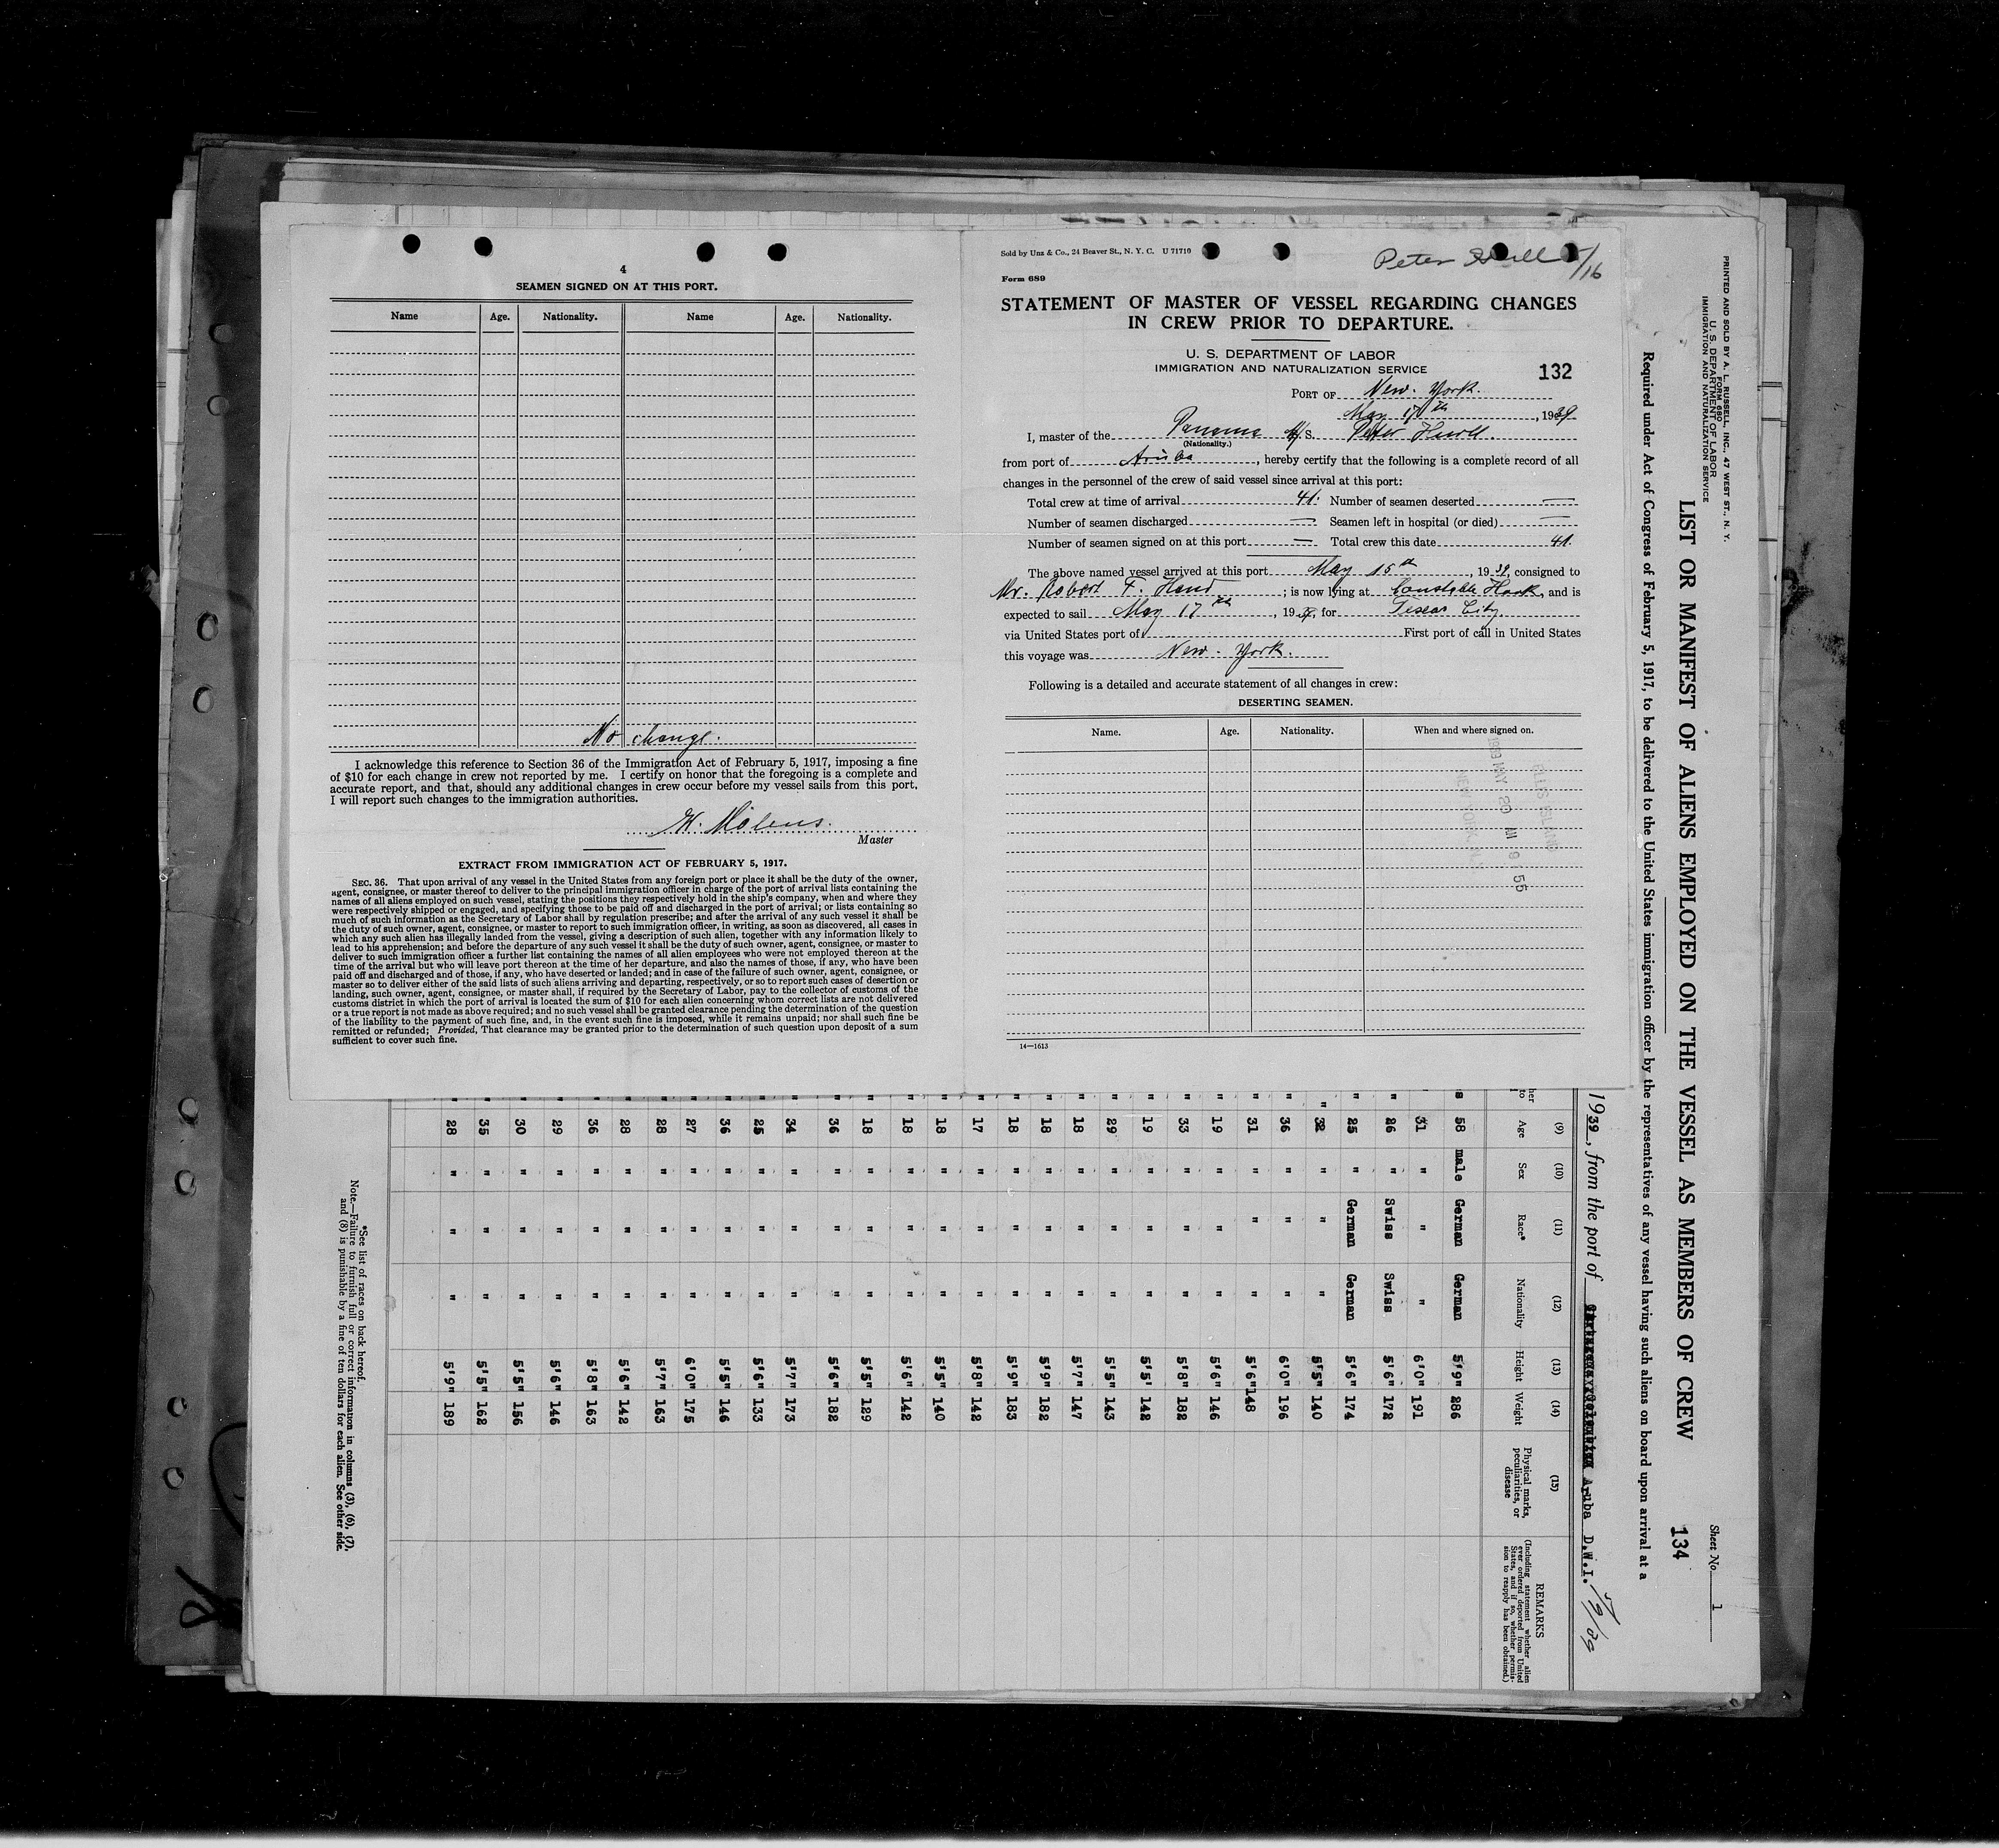 4
SEAMEN SIGNED ON AT THIS PORT.
Name Age. Nationality. Name Age. Nationality.
No change.
I acknowledge this reference to Section 36 of the Immigration Act of February 5, 1917, imposing a fine
of $10 for each change in crew not reported by me. I certify on honor that the foregoing is a complete and
accurate report, and that, should any additional changes in crew occur before my vessel sails from this port,
I will report such changes to the immigration authorities.
Master
EXTRACT FROM IMMIGRATION ACT OF FEBRUARY 5, 1917.
SEC. 36. That upon arrival of any vessel in the United States from any foreign port or place it shall be the duty of the owner,
agent, consignee, or master thereof to deliver to the principal immigration officer in charge of the port of arrival lists containing the
names of all aliens employed on such vessel, stating the positions they respectively hold in the ship's company, when and where they
were respectively shipped or engaged, and specifying those to be paid off and discharged in the port of arrival; or lists containing so
much of such information as the Secretary of Labor shall by regulation prescribe; and after the arrival of any such vessel it shall be
the duty of such owner, agent, consignee, or master to report to such immigration officer, in writing, as soon as discovered, all cases in
which any such alien has illegally landed from the vessel, giving a description of such alien, together with any information likely to
lead to his apprehension; and before the departure of any such vessel it shall be the duty of such owner, agent, consignee, or master to
deliver to such immigration officer a further list containing the names of all alien employees who were not employed thereon at the
time of the arrival but who will leave port thereon at the time of her departure, and also the names of those, if any, who have been
paid off and discharged and of those, if any, who have deserted or landed; and in case of the failure of such owner, agent, consignee, or
master so to deliver either of the said lists of such aliens arriving and departing, respectively, or so to report such cases of desertion or
landing, such owner, agent, consignee, or master shall, if required by the Secretary of Labor, pay to the collector of customs of the
customs district in which the port of arrival is located the sum of $10 for each alien concerning whom correct lists are not delivered
or a true report is not made as above required; and no such vessel shall be granted clearance pending the determination of the question
of the liability to the payment of such fine, and, in the event such fine is imposed, while it remains unpaid; nor shall such fine be
remitted or refunded; Provided, That clearance may be granted prior to the determination of such question upon deposit of a sum
sufficient to cover such fine.
Sold by Unz & Co., 24 Beaver St., N. Y. C. U 71710
Peter Hurll 5/16
Form 689
STATEMENT OF MASTER OF VESSEL REGARDING CHANGES
IN CREW PRIOR TO DEPARTURE.
U. S. DEPARTMENT OF LABOR
IMMIGRATION AND NATURALIZATION SERVICE
132
PORT OF New-York.
May 17th, 1939
I, master of the Panama M/S. Peter Hurll.
(Nationality.)
from port of Aruba, hereby certify that the following is a complete record of all
changes in the personnel of the crew of said vessel since arrival at this port:
Total crew at time of arrival 41. Number of seamen deserted —
Number of seamen discharged — Seamen left in hospital (or died) —
Number of seamen signed on at this port — Total crew this date 41.
The above named vessel arrived at this port May 15th, 1939, consigned to
Mr. Robert F. Hand; is now lying at Constable Hook, and is
expected to sail May 17th, 1939, for Texas City.
via United States port of First port of call in United States
this voyage was New-York.
Following is a detailed and accurate statement of all changes in crew:
DESERTING SEAMEN.
Name. Age. Nationality. When and where signed on.
ELLIS ISLAND
1939 MAY 20 AM 9 55
NEW YORK
14—1613
PRINTED AND SOLD BY A. L. RUSSELL, INC., 47 WEST ST., N. Y.
FORM 680
U. S. DEPARTMENT OF LABOR
IMMIGRATION AND NATURALIZATION SERVICE
Sheet No. 1
LIST OR MANIFEST OF ALIENS EMPLOYED ON THE VESSEL AS MEMBERS OF CREW
134
Required under Act of Congress of February 5, 1917, to be delivered to the United States immigration officer by the representatives of any vessel having such aliens on board upon arrival at a
1939, from the port of Aruba D.W.I. 5/9/39
(9) (10) (11) (12) (13) (14) (15)
Age Sex Race* Nationality Height Weight Physical marks, peculiarities, or disease
REMARKS
(Including statement whether alien
ever ordered deported from United
States, and if so, whether permis-
sion to reapply has been obtained.)
58 male German German 5'9" 286
31 " " " 6'0" 191
26 " Swiss Swiss 5'6" 172
25 " German German 5'6" 174
32 " " " 5'5" 140
36 " " " 6'0" 196
31 " " " 5'6" 148
19 " " " 5'6" 146
33 " " " 5'8" 182
19 " " " 5'5' 142
29 " " " 5'5" 143
18 " " " 5'7" 147
18 " " " 5'9" 182
18 " " " 5'9" 183
17 " " " 5'8" 142
18 " " " 5'5" 140
18 " " " 5'6" 142
18 " " " 5'5" 129
36 " " " 5'6" 182
34 " " " 5'7" 173
25 " " " 5'6" 133
36 " " " 5'5" 146
27 " " " 6'0" 175
28 " " " 5'7" 163
28 " " " 5'6" 142
36 " " " 5'8" 163
29 " " " 5'6" 146
30 " " " 5'5" 156
35 " " " 5'5" 162
28 " " " 5'9" 189
*See list of races on back hereof.
Note.—Failure to furnish full or correct information in columns (3), (6), (7),
and (8) is punishable by a fine of ten dollars for each alien. See other side.